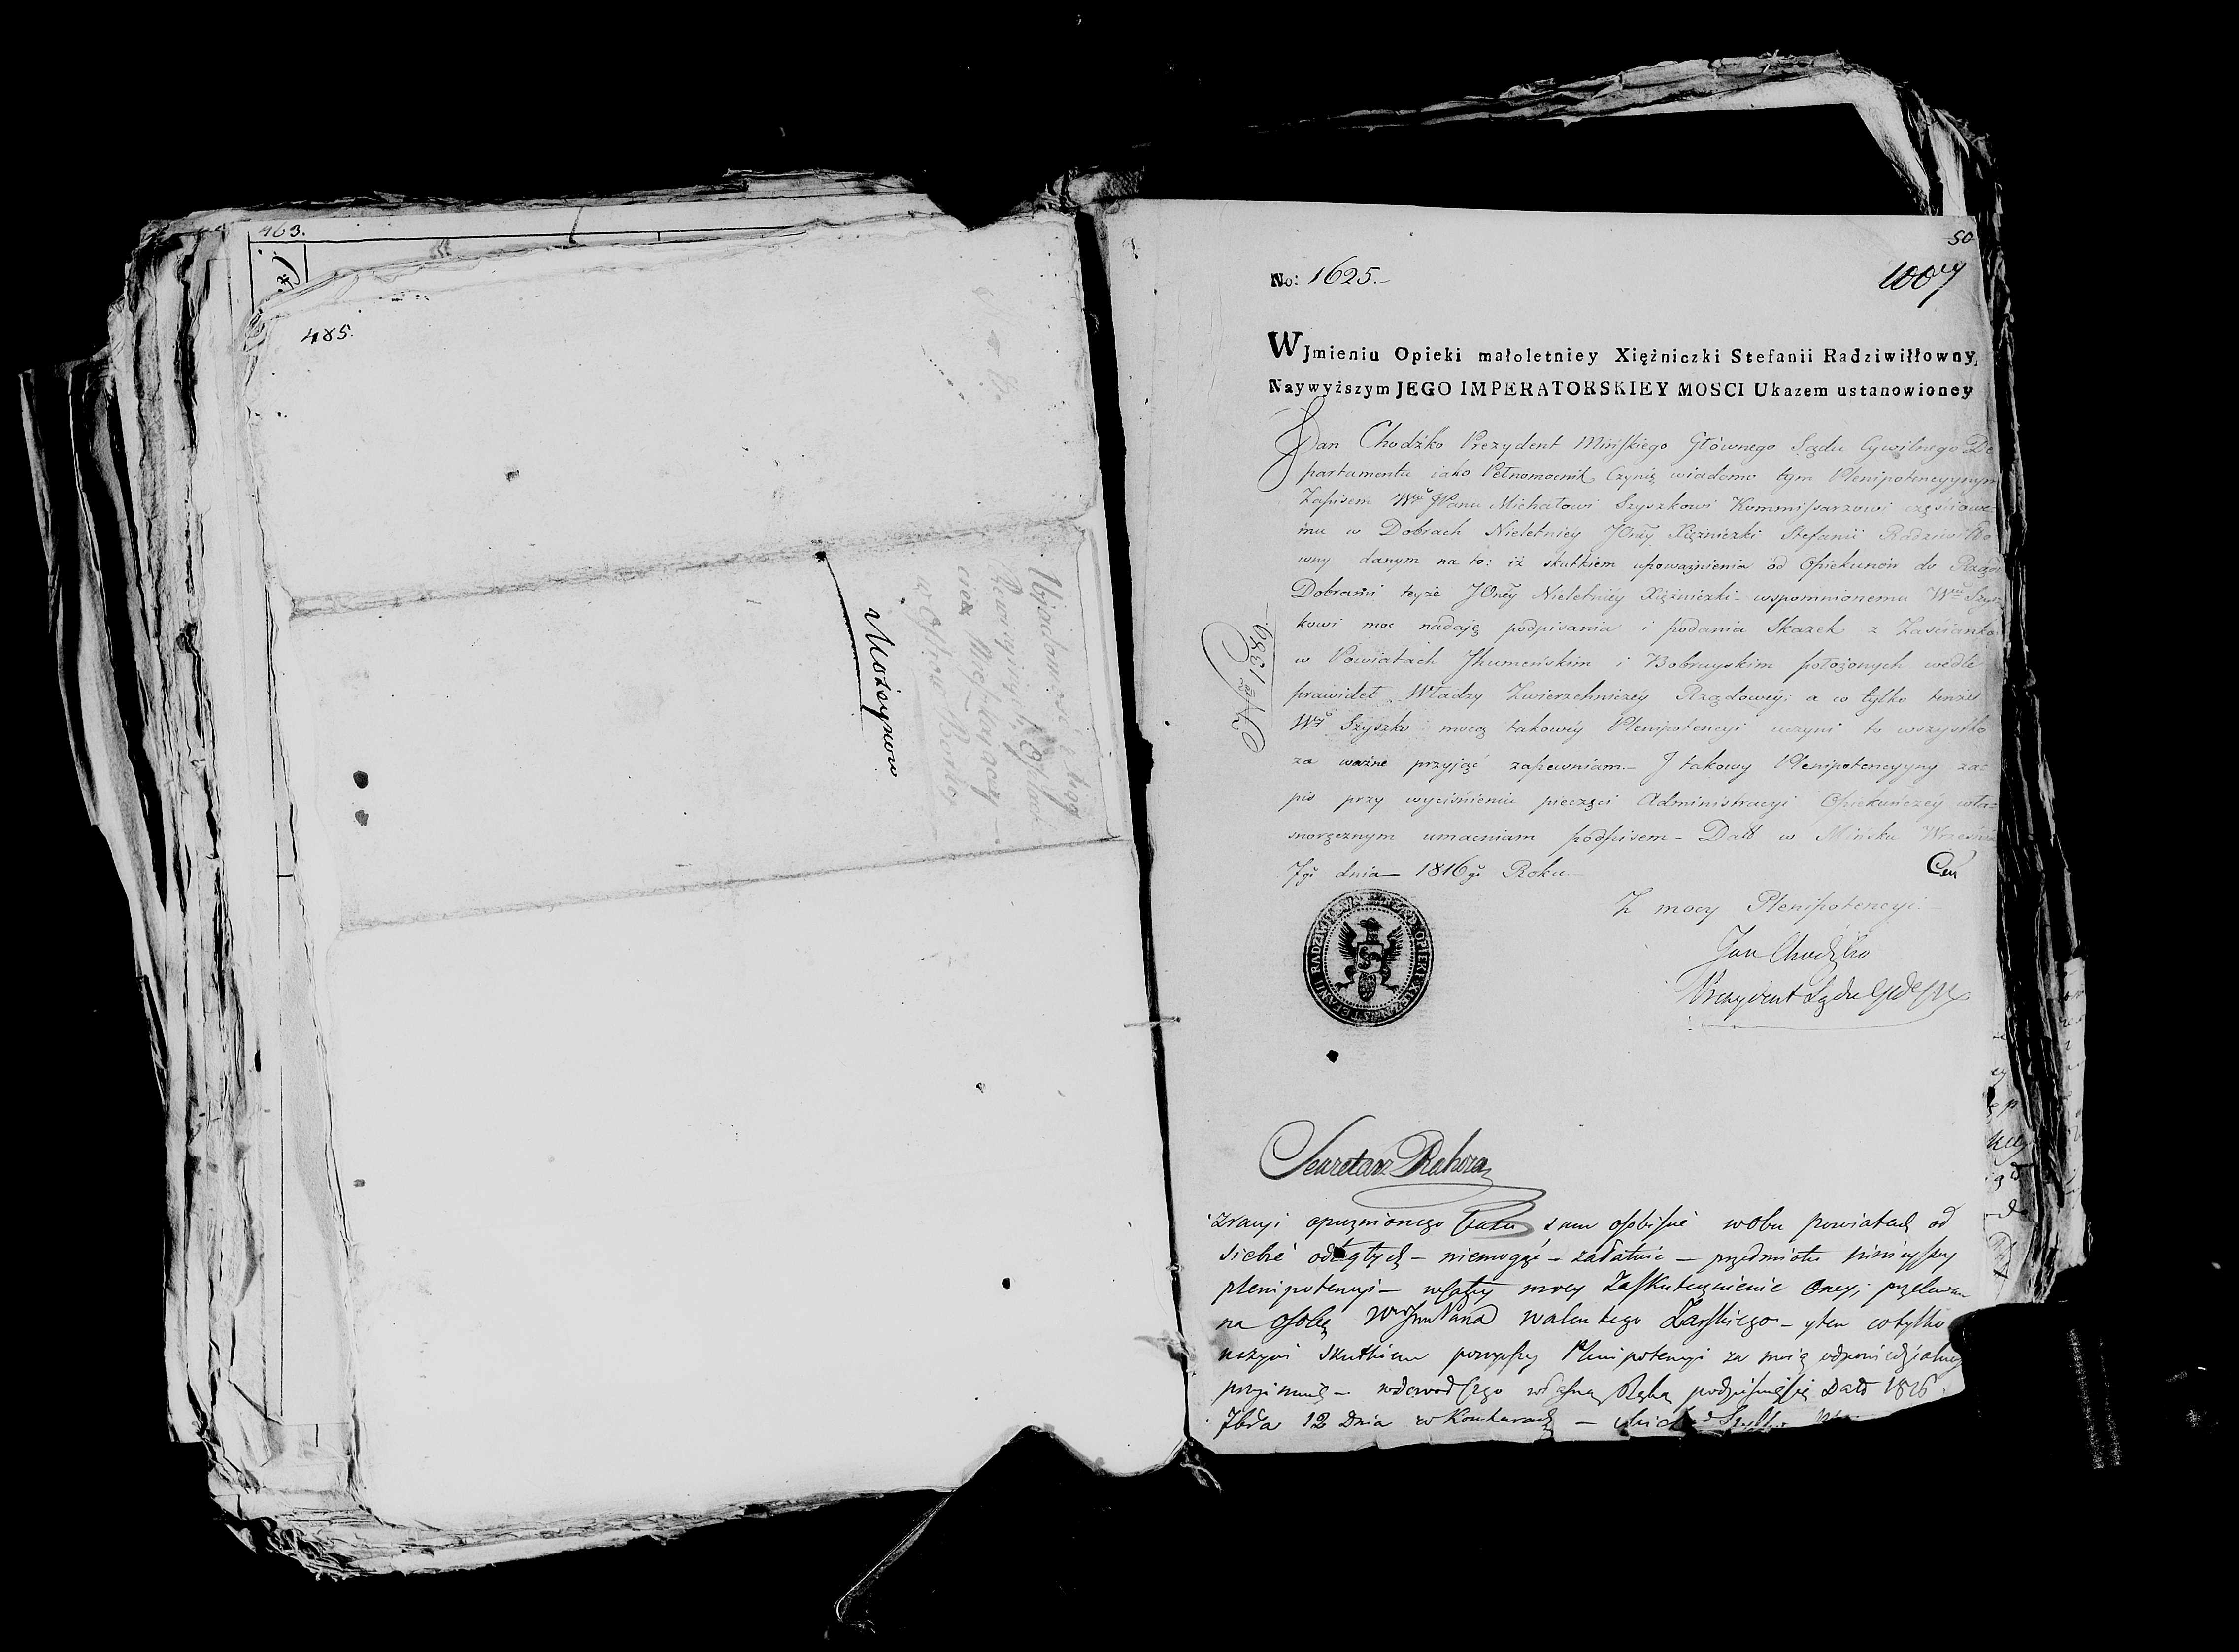 463.
485.
Możeynow
50
No: 1625.-
1007
W Jmieniu Opieki małoletniey Xiężniczki Stefanii Radziwiłłowny,
Naywyższym JEGO IMPERATORSKIEY MOSCI Ukazem ustanowioney
Jan Chodźko Prezydent Mińskiego Głównego Sądu Cywilnego De
partamentu jako Pełnomocnik Czynię wiadomo tym Plenipotencyynym
Zapisem Wmu JPanu Michałowi Szyszkowi Kommissarzowi częściowe=
mu w Dobrach Nieletniey JOney Xiężniczki Stefanii Radziwiłło
wny danym na to: iż skutkiem upoważnienia od Opiekunow do Rządu
Dobrami teyże JOney Nieletniey Xiężniczki wspomnionemu Wmu Szysz
kowi moc nadaję podpisania i podania Skazek z Zaścianko
w Powiatach Jhumeńskim i Bobruyskim położonych wedle
prawideł Władzy Zwierzchniczey Rządowey; a co tylko tenże
Wy Szyszko mocą takowey Plenipotencyi uczyni to wszystko
za ważne przyjąć zapewniam.- J takowy Plenipotencyyny za=
pis przy wyciśnieniu pieczęci Administracyi Opiekuńczey wła=
snoręcznym umacniam podpisem - Datt w Mińsku Września
7go dnia - 1816go Roku -
Z mocy Plenipotencyi
Jan Chodźko
Prezydent Sądu
Sekretarz Rahoza
sam osobiście w obu powiatach od
siebie odległych - niemogąc - załatwić - przedmiotu ninieyszey
plenipotencyi - mocy zaskutecznienie Oney; przelewam
na osobę Walentego Zarskiego - yten cotylko
uczyni skutkiem powyższey Plenipotencyi za moią odpowiedzialność
przyimuię - wdowod czego własną Ręką podpisuięsię Datt 1816
7bra 12 Dnia